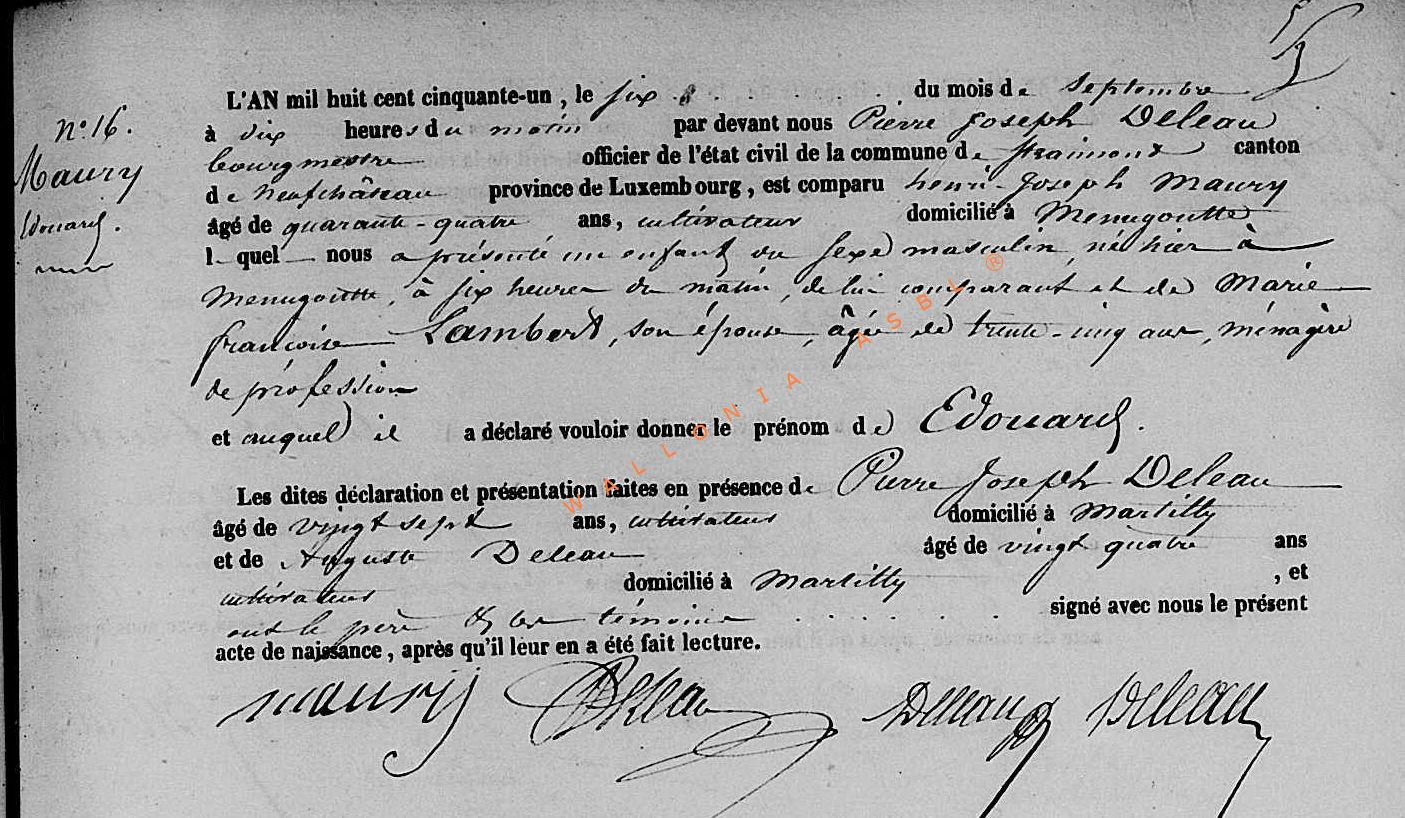 5
N° 16.
Maury
Edouard.
L'AN mil huit cent cinquante-un, le six . . . . . . du mois de Septembre
à dix heures du matin par devant nous Pierre Joseph Deleau
bourgmestre officier de l'état civil de la commune de Straimont canton
de Neufchâteau province de Luxembourg, est comparu henri-Joseph Maury
âgé de quarante-quatre ans, cultivateur domicilié à Menugoutte
lequel nous a présenté un enfant du sexe masculin, né hier à
Menugoutte, à six heures du matin, de lui comparant et de Marie
françoise Lambert, son épouse, âgée de trente-cinq ans, ménagère
de profession
et auquel il a déclaré vouloir donner le prénom de Edouard.
Les dites déclaration et présentation faites en présence de Pierre Joseph Deleau
âgé de vingt sept ans, cultivateur domicilié à Martilly
et de Auguste Deleau âgé de vingt quatre ans
cultivateur domicilié à Martilly , et
ont le père & les témoins . . . . . . signé avec nous le présent
acte de naissance, après qu'il leur en a été fait lecture.
Maury Deleau Deleau Deleau
WALLONIA ASBL ®